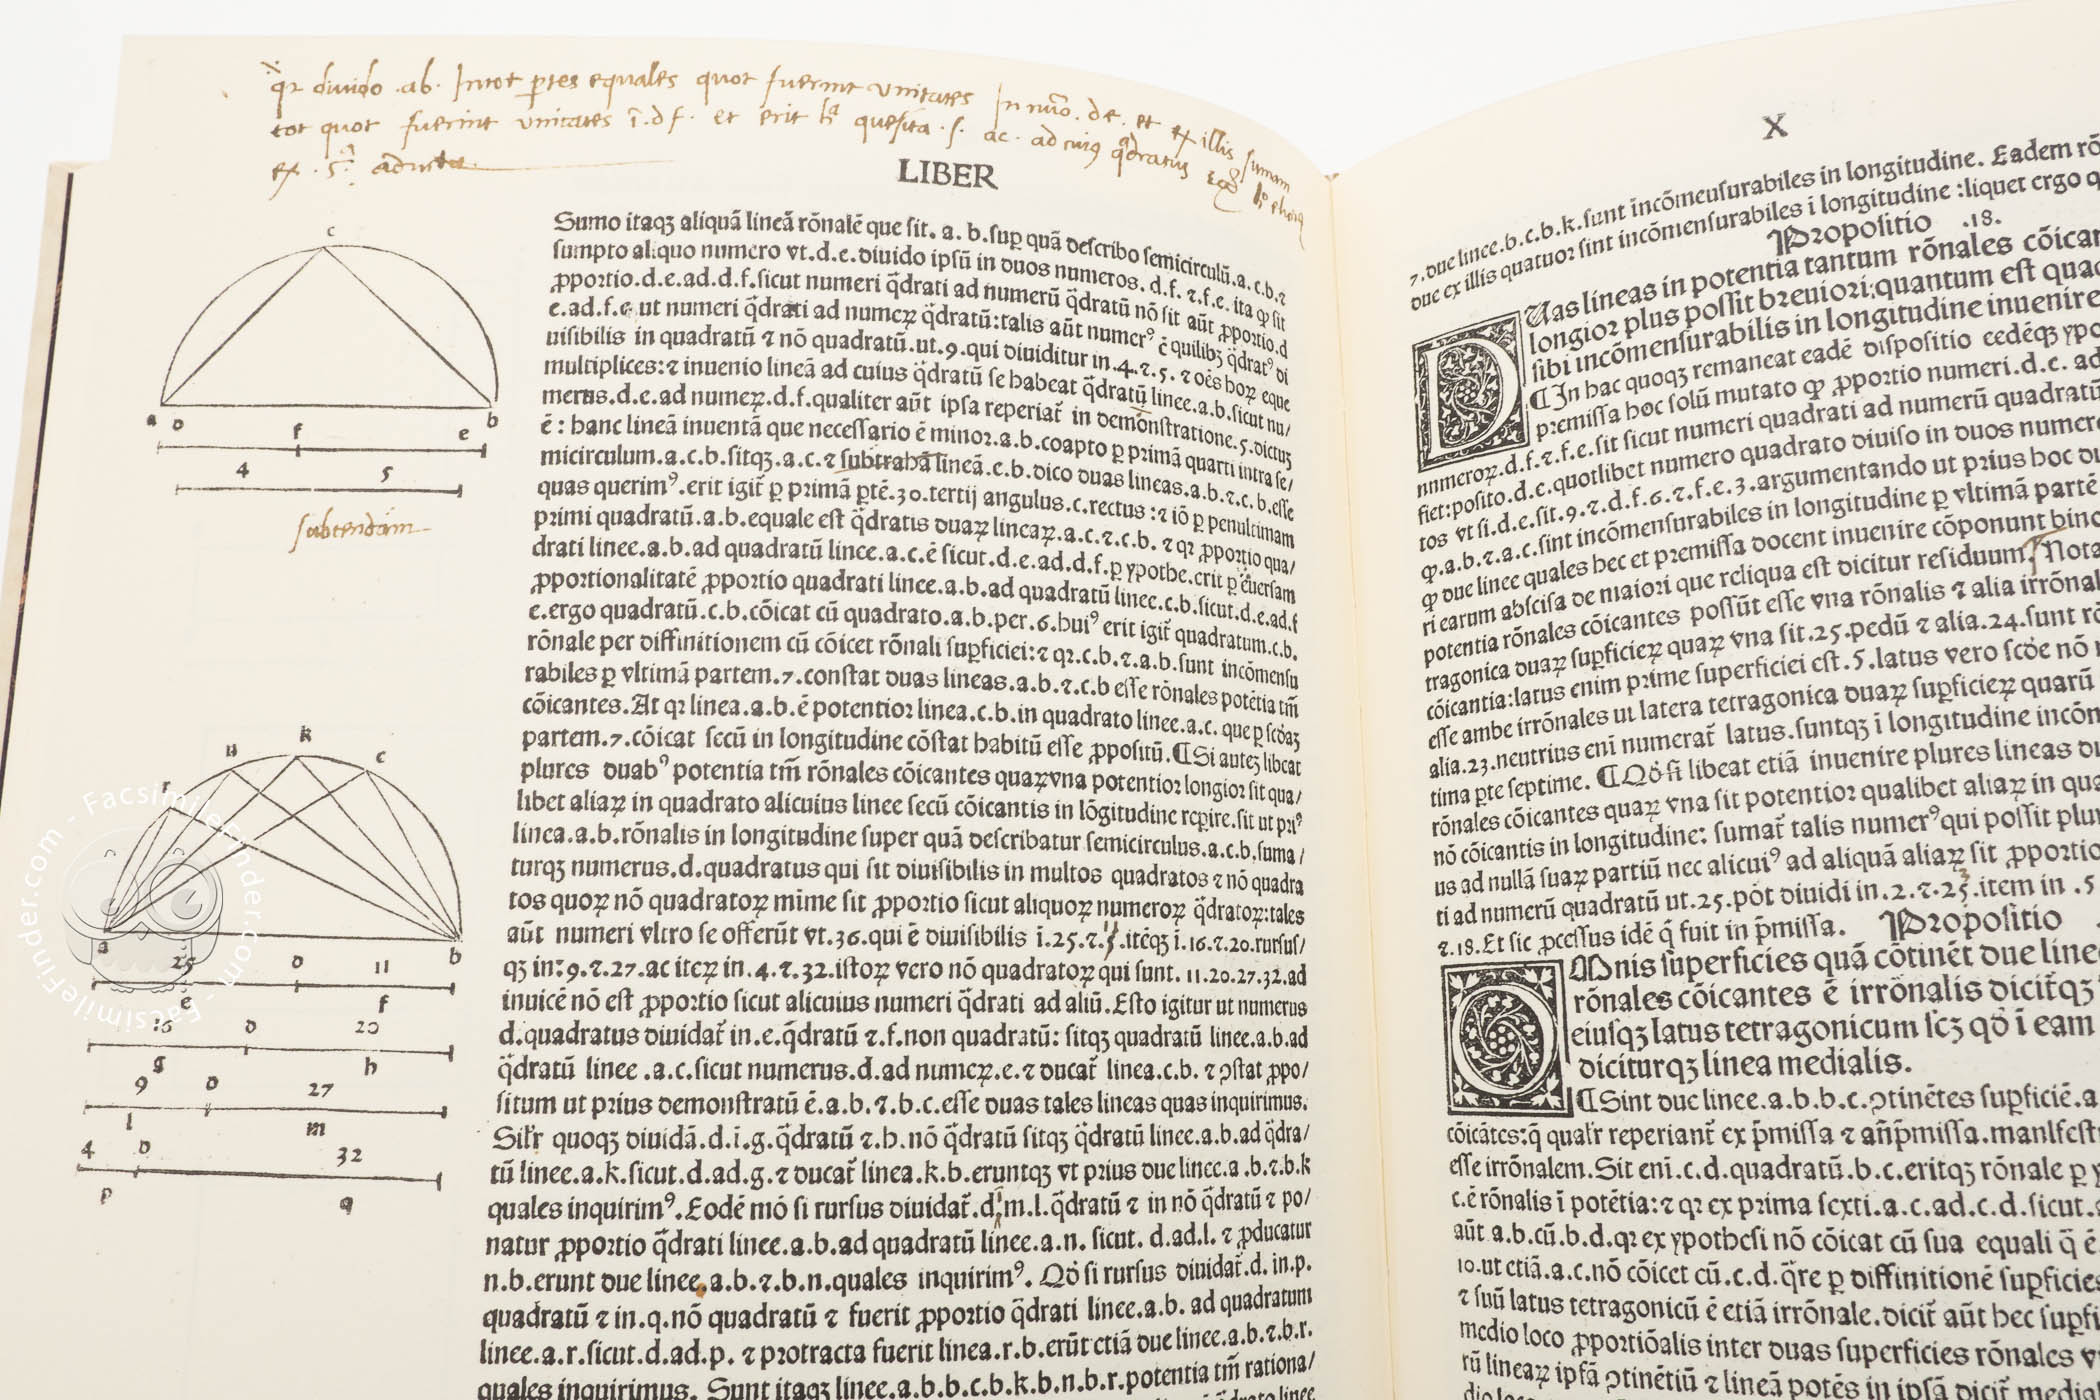 qr divido .ab. In tot ptes equales quot fuerint unitates In nuo. de. et ex illis sumam
tot quot fuerint unitates ī. df. et erit ha quesita .s. ac. ad cuius qdratus
ex .5a. adducta
LIBER
Sumo itaqʒ aliquā lineā rōnalē que sit. a.b. sup quā describo semicirculū.a.c.b.⁊
sumpto aliquo numero vt.d.e.diuido ipsū in duos numeros. d.f. ⁊.f.e. ita ꝙ sit
ꝓportio.d.e.ad.d.f.sicut numeri q̄drati ad numerū q̄dratū nō sit aūt ꝓportio.d
e.ad.f.e. ut numeri q̄drati ad numeꝝ q̄dratū:talis aūt numerꝰ ē quilibʒ q̄dratꝰ di
uisibilis in quadratū ⁊ nō quadratū.ut.9.qui diuiditur in.4.⁊.5. ⁊ oēs hoꝝ eque
multiplices:⁊ inuenio lineā ad cuius q̄dratū se habeat q̄dratū linee.a.b.sicut nu/
merus.d.e.ad numeꝝ.d.f.qualiter aūt ipsa reperiat̄ in demōnstratione.5.dictuʒ
ē: hanc lineā inuentā que necessario ē minor.a.b.coapto ꝑ primā quarti intra se/
micirculum.a.c.b.sitqʒ.a.c.⁊ subtrahā lineā.c.b.dico duas lineas.a.b.⁊.c.b.esse
quas querimꝰ.erit igit̄ ꝑ primā ꝑtē.30.tertij angulus.c.rectus:⁊ iō ꝑ penultimam
primi quadratū.a.b.equale est q̄dratis duaꝝ lineaꝝ.a.c.⁊.c.b. ⁊ qr ꝓportio qua/
drati linee.a.b.ad quadratū linee.a.c.ē sicut.d.e.ad.d.f.ꝑ ypothe.erit ꝑ ēuersam
ꝓportionalitatē ꝓportio quadrati linee.a.b.ad quadratū linee.c.b.sicut.d.e.ad.f
e.ergo quadratū.c.b.cōicat cū quadrato.a.b.per.6.huiꝰ erit igit̄ quadratum.c.b.
rōnale per diffinitionem cū cōicet rōnali suꝑficiei:⁊ qr.c.b.⁊.a.b.sunt incōmensu
rabiles ꝑ vltimā partem.7.constat duas lineas.a.b.⁊.c.b esse rōnales potētia tm̄
cōicantes.At qr linea.a.b.ē potentior linea.c.b.in quadrato linee.a.c. que ꝑ scd̄aʒ
partem.7.cōicat secū in longitudine cōstat habitū esse ꝓpositū.¶Si auteʒ libeat
plures duabꝰ potentia tm̄ rōnales cōicantes quaꝝ vna potentior longior sit qua/
libet aliaꝝ in quadrato alicuius linee secū cōicantis in lōgitudine reperire.sit ut priꝰ
linea.a.b.rōnalis in longitudine super quā describatur semicirculus.a.c.b.suma/
turqʒ numerus.d.quadratus qui sit diuisibilis in multos quadratos ⁊ nō quadra
tos quoꝝ nō quadratoꝝ mime sit ꝓportio sicut aliquoꝝ numeroꝝ q̄dratoꝝ:tales
aūt numeri vltro se offerūt vt.36.qui ē diuisibilis ī.25.⁊.11.itēqʒ ī.16.⁊.20.rursus/
qʒ in:9.⁊.27.ac iteꝝ in.4.⁊.32.istoꝝ vero nō quadratoꝝ qui sunt. 11.20.27.32.ad
inuicē nō est ꝓportio sicut alicuius numeri q̄drati ad aliū. Esto igitur ut numerus
d.quadratus diuidat̄ in.e.q̄dratū ⁊.f.non quadratū: sitqʒ quadratū linee.a.b.ad
q̄dratū linee .a.c.sicut numerus.d.ad numeꝝ.e.⁊ ducat̄ linea.c.b. ⁊ ꝯstat ꝓpo/
situm ut prius demonstratū ē.a.b.⁊.b.c.esse duas tales lineas quas inquirimus.
Sil'r quoqʒ diuidā.d.ī.g.q̄dratū ⁊.h.nō q̄dratū sitqʒ q̄dratū linee.a.b.ad q̄dra/
tū linee.a.k.sicut.d.ad.g.⁊ ducat̄ linea.k.b.eruntqʒ vt prius due linee.a.b.⁊.b.k
quales inquirimꝰ.Eodē mō si rursus diuidat̄.d.m.l.q̄dratū ⁊ in nō q̄dratū ⁊ po/
natur ꝓportio q̄drati linee.a.b.ad quadratū linee.a.n. sicut. d.ad.l. ⁊ ꝓducatur
n.b.erunt due linee.a.b.⁊.b.n.quales inquirimꝰ. Qd̄ si rursus diuidat̄.d. in.p.
quadratū ⁊ in.q.nō quadratū ⁊ fuerit ꝓportio q̄drati linee.a.b. ad quadratum
linee.a.r.sicut.d.ad.p. ⁊ protracta fuerit linea.r.b.erūt etiā due linee.a.b.⁊.b.r.
quales inquirimus. Sunt itaqʒ linee.a.b.b.c.b.k.b.n.b.r.potentia tm̄ rationa/
c
a
b
d
f
e
4
5
subtendam
r
n
k
c
a
b
25
d
11
e
f
16
d
20
g
h
9
d
27
l
m
4
d
32
p
q
FacsimileFinder.com - FacsimileFinder.com -
X
⁊.due linee.b.c.b.k.sunt incōmensurabiles in longitudine. Eadem rō
due ex illis quatuor sint incōmensurabiles ī longitudine:liquet ergo q
Propositio .18.
DUas lineas in potentia tantum rōnales cōican
longior plus possit breuiori:quantum est quad
sibi incōmensurabilis in longitudine inuenire
¶In hac quoqʒ remaneat eadē dispositio eedēqʒ ypo
premissa hoc solū mutato ꝙ ꝓportio numeri.d.e. ad
numeroꝝ.d.f.⁊.f.e.sit sicut numeri quadrati ad numerū quadratū
fiet:posito.d.e.quotlibet numero quadrato diuiso in duos numer
tos vt si.d.e.sit.9.⁊.d.f.6.⁊.f.e.3.argumentando ut prius hoc du
ꝙ.a.b.⁊.a.c.sint incōmensurabiles in longitudine ꝑ vltimā partē
ꝙ due linee quales hec et premissa docent inuenire cōponunt bino
ri earum abscisa de maiori que reliqua est dicitur residuum. Nota
potentia rōnales cōicantes possūt esse vna rōnalis ⁊ alia irrōnal
tragonica duaꝝ suꝑficieꝝ quaꝝ vna sit.25.pedū ⁊ alia.24.sunt rō
cōicantia:latus enim prime superficiei est.5.latus vero scd̄e nō
esse ambe irrōnales ut latera tetragonica duaꝝ suꝑficieꝝ quarū
alia.23.neutrius enī numerat̄ latus.suntqʒ ī longitudine incōm
tima ꝑte septime. ¶Qd̄ si libeat etiā inuenire plures lineas du
rōnales cōicantes quaꝝ vna sit potentior qualibet aliaꝝ in qua
nō cōicantis in longitudine: sumat̄ talis numerꝰ qui possit plur
us ad nullā suaꝝ partiū nec alicuiꝰ ad aliquā aliaꝝ sit ꝓportio
ti ad numerū quadratū ut.25.pōt diuidi in.2.⁊.23.item in .5
⁊.18.Et sic ꝓcessus idē q̄ fuit in p̄missa. Propositio
OMnis superficies quā cōtinēt due line
rōnales cōicantes ē irrōnalis dicit̄qʒ
eiusqʒ latus tetragonicum scʒ qd̄ ī eam
diciturqʒ linea medialis.
¶Sint due linee.a.b.b.c.ꝯtinētes suꝑficiē.a
cōicātes:q̄ qual'r reperiant̄ ex p̄missa ⁊ an̄p̄missa.manifest
esse irrōnalem.Sit enī.c.d.quadratū.b.c.eritqʒ rōnale ꝑ
c.ē rōnalis ī potētia:⁊ qr ex prima sexti.a.c.ad.c.d.sicut.
aūt a.b.cū.b.d.qr ex ypothesi nō cōicat cū sua equali q̄ ē
10.ut etiā.a.c.nō cōicet cū.c.d.q̄re ꝑ diffinitionē suꝑficies
⁊ suū latus tetragonicū ē etiā irrōnale.dicit̄ aūt hec suꝑfi
medio loco ꝓportiōalis inter duas superficies rōnales
rū lineaꝝ ipsā ꝯtinētiū ⁊ lineā potēs in ipsā dicit̄